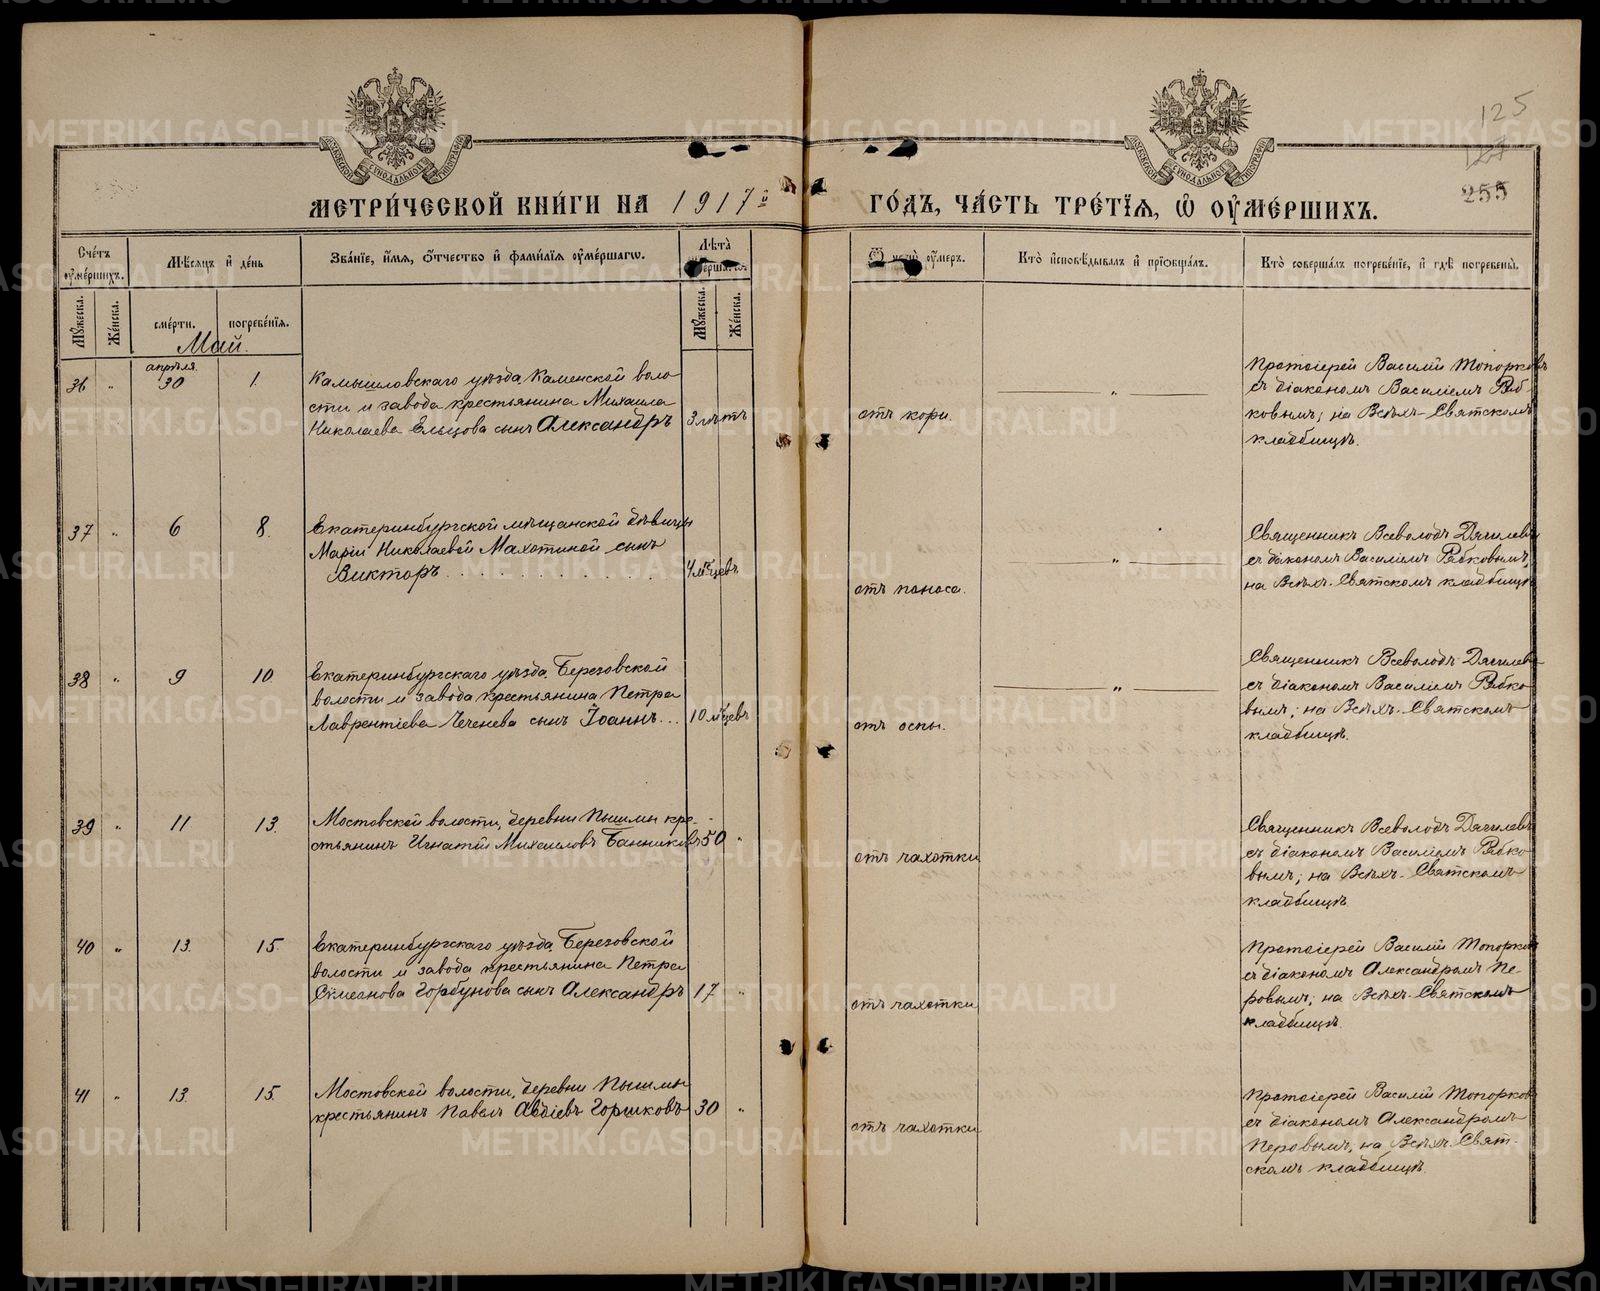 125
127
255
МЕТРИ́ЧЕСКОЙ КНИ́ГИ НА 1917й ГО́ДЪ, ЧА́СТЬ ТРЕ́ТЇѦ, Ѡ҆ ОУ҆МЕ́РШИХЪ.
Сче́тъ оу҆ме́ршихъ.
Мѣ́сѧцъ и҆ де́нь
Зва́нїе, и҆́мѧ, ѻ҆́тчество и҆ фами́лїѧ оу҆ме́ршагѡ.
Лѣ́та
Ѿ чегѡ̀ оу҆́меръ.
Кто̀ и҆сповѣ́дывалъ и҆ прїѡбща́лъ.
Кто̀ соверша́лъ погребе́нїе, и҆ гдѣ̀ погребены̀.
Мꙋ́жеска.
Же́нска.
сме́рти.
погребе́нїѧ.
Мꙋ́жеска.
Же́нска.
Май.
36 " апрѣля 30 1.
Камышловскаго уѣзда, Каменской воло-
сти и завода крестьянина Михаила
Николаева Ельцова сынъ Александръ
3 лѣтъ
отъ кори.
"
Протоіерей Василій Топорковъ
съ діакономъ Василіемъ Ряб-
ковымъ; на Всѣхъ-Святскомъ
кладбищѣ.
37 " 6 8.
Екатеринбургской мѣщанской дѣвицы
Маріи Николаевой Махотиной сынъ
Викторъ . . . . . . . . . . . . .
4 мѣсцевъ
отъ поноса.
"
Священникъ Всеволодъ Дягилевъ
съ діакономъ Василіемъ Рябковымъ,
на Всѣхъ-Святскомъ кладбищѣ
38 " 9 10
Екатеринбургскаго уѣзда, Березовской
волости и завода крестьянина Петра
Лаврентіева Чеченева сынъ Іоаннъ...
10 мѣсцевъ
отъ оспы.
"
Священникъ Всеволодъ Дягилевъ
съ діакономъ Василіемъ Рябко-
вымъ; на Всѣхъ-Святскомъ
кладбищѣ.
39 " 11 13.
Мостовской волости, деревни Пышмы кре-
стьянинъ Игнатій Михаиловъ Банниковъ
50 "
отъ чахотки
Священникъ Всеволодъ Дягилевъ
съ діакономъ Василіемъ Рябко-
вымъ; на Всѣхъ-Святскомъ
кладбищѣ
40 " 13. 15
Екатеринбургскаго уѣзда, Березовской
волости и завода крестьянина Петра
Горбунова сынъ Александръ
17 "
отъ чахотки
Протоіерей Василій Топорковъ
съ діакономъ Александромъ Пе-
ровымъ; на Всѣхъ-Святскомъ
кладбищѣ.
41 " 13. 15.
Мостовской волости, деревни Пышмы
крестьянинъ Павелъ Авдіевъ Горшковъ
30 "
отъ чахотки
Протоіерей Василій Топорковъ
съ діакономъ Александромъ
Перовымъ, на Всѣхъ-Свят-
скомъ кладбищѣ.
METRIKI.GASO-URAL.RU